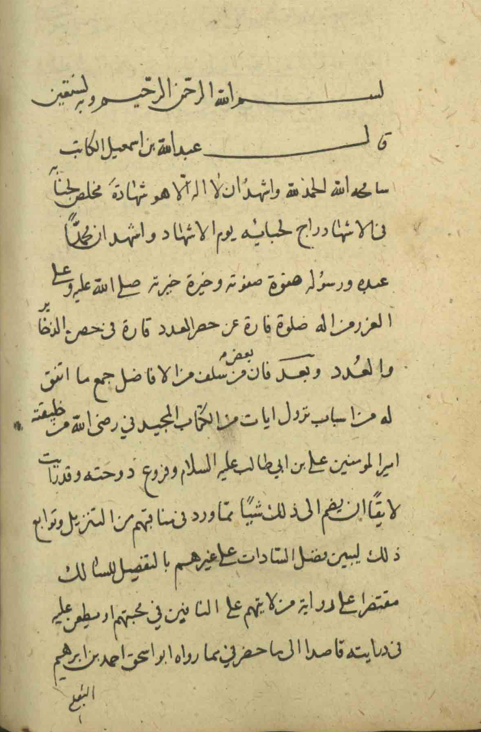 بسم الله الرحمن الرحيم وبه نستعين
قال عبدالله بن اسمعيل الكاتب
سامحه الله الحمد لله واشهد ان لا اله الا هو شهادة مخلص لجنابه
في الاشهاد راج لحبائه يوم الاشهاد واشهد ان محمدا
عبده ورسوله صفوة صفوته وخيرة خيرته صلى الله عليه وعلى
الغرر من اله صلوة قارة عن حصر العدد قارة في حصن الذخاير
والعدد وبعد فان بعض من سلف من الافاضل جمع ما اتفق
له من اسباب نزول ايات من الكتاب المجيد في رضى الله من خليقته
امير المومنين علي بن ابي طالب عليه السلام وفروع دوحته وقد رايت
لايقا ان يضم الى ذلك شيئا مما ورد في مناقبهم من التنزيل وتوابع
ذلك ليبين فضل السادات على غيرهم بالتفصيل للسالك
مقتصرا على رواية من لا يتهم على النافين في محبتهم او يطعن عليه
في درايته قاصدا الى ما حضرني بما رواه ابو اسحق احمد بن ابرهيم
الثعلبي